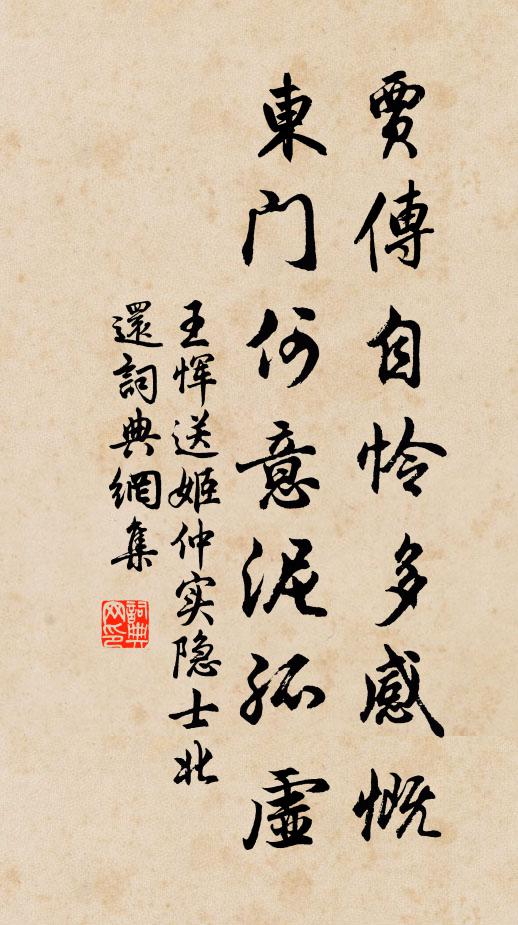 賈傅自怜多感慨
東门何意泥孤虛
王恽送姬仲实隐士北
還詞典網集
詞典网印